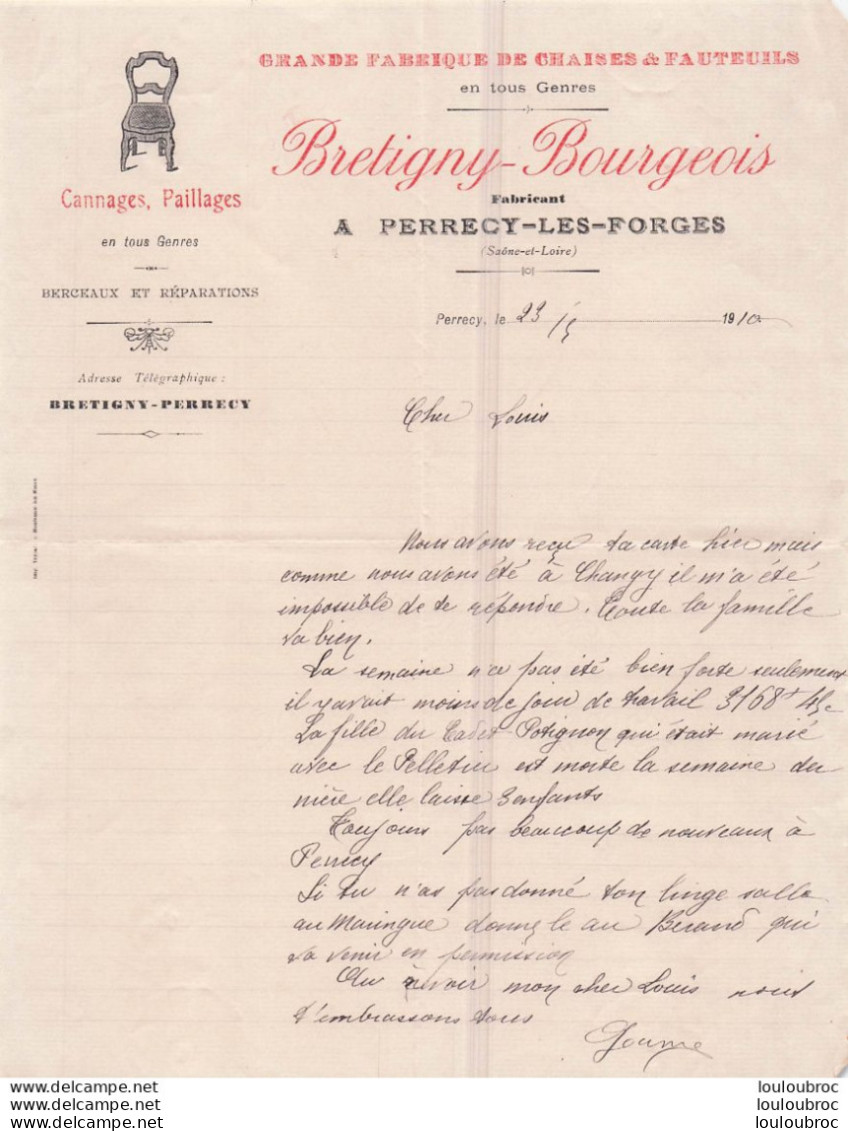 GRANDE FABRIQUE DE CHAISES & FAUTEUILS
en tous Genres
Bretigny-Bourgeois
Fabricant
A PERRECY-LES-FORGES
(Saône-et-Loire)
Cannages, Paillages
en tous Genres
BERCEAUX ET RÉPARATIONS
Adresse Télégraphique :
BRETIGNY-PERRECY
Perrecy, le 23/5 1910
Cher Louis
Nous avons reçu ta carte hier mais
comme nous avons été à Changy il m'a été
impossible de te répondre. Toute la famille
va bien.
La semaine n'a pas été bien forte seulement
il y avait moins de jour de travail 3168 f 45c
La fille du Cadet Potignon qui était marié
avec le Pelletier est morte la semaine der
nière elle laisse 3 enfants
Toujours pas beaucoup de nouveaux à
Perrecy
Si tu n'as pas donné ton linge salle
au Maringue donne le au Beraud qui
va venir en permission
Au revoir mon cher Louis nous
t'embrassons tous
louloubroc
louloubroc
louloubroc